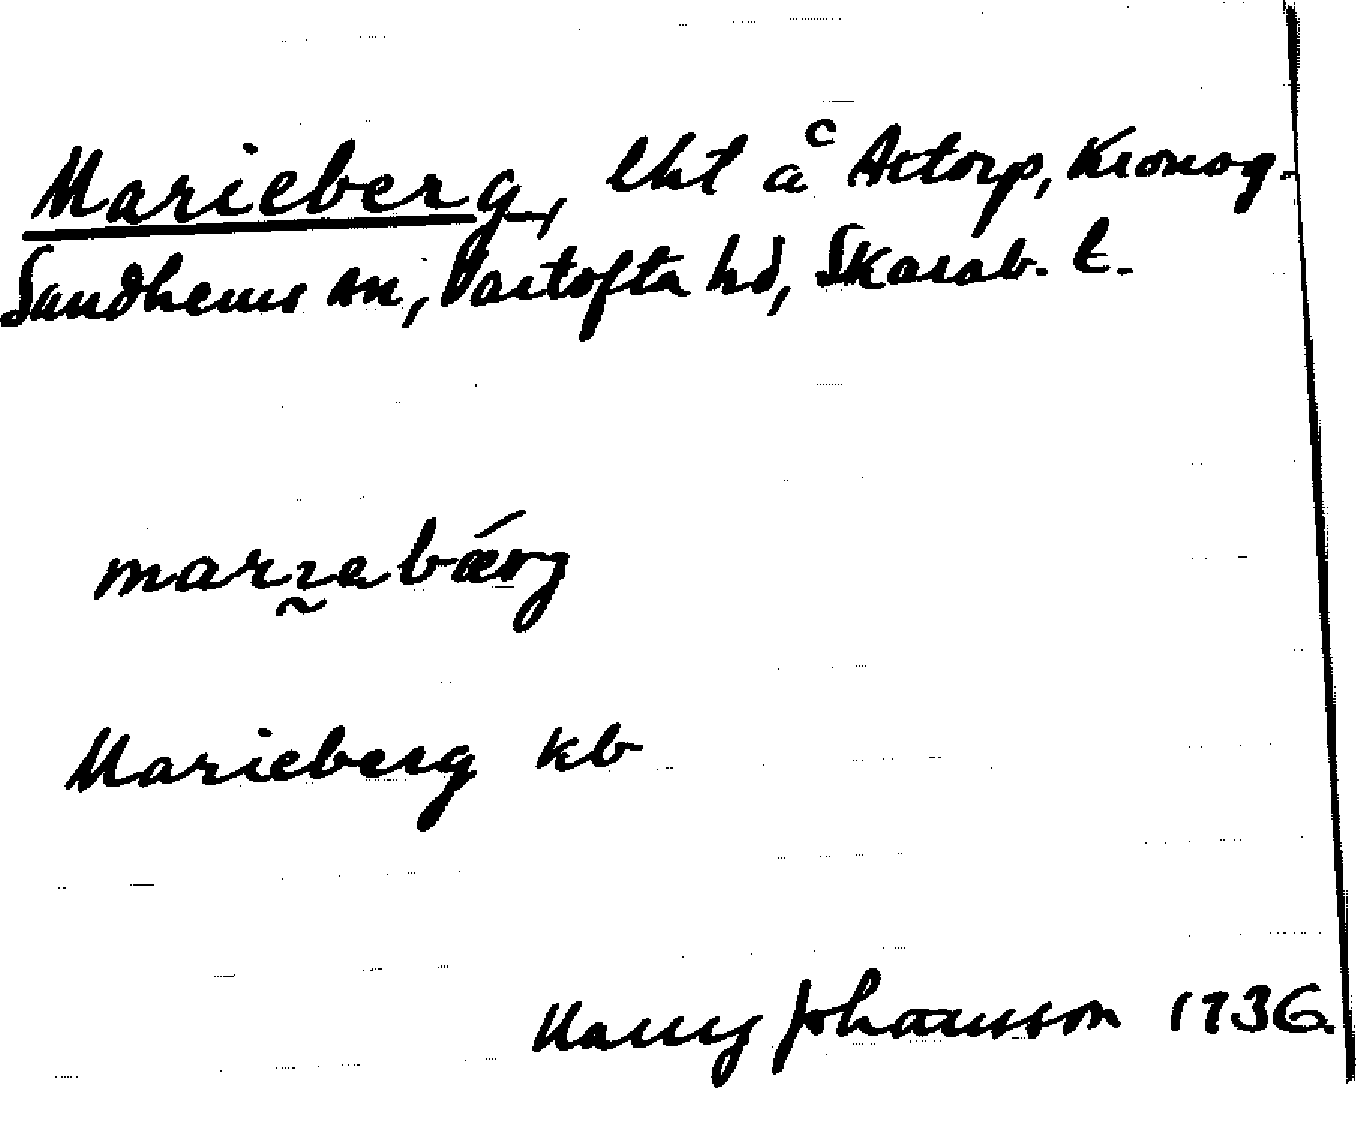 Marieberg, lht å Artorp, Kronog.
Sandhems sn, Vartofta hd, Skarab. l.
marɩabǽrg
Marieberg kb
Harry Johansson 1936.